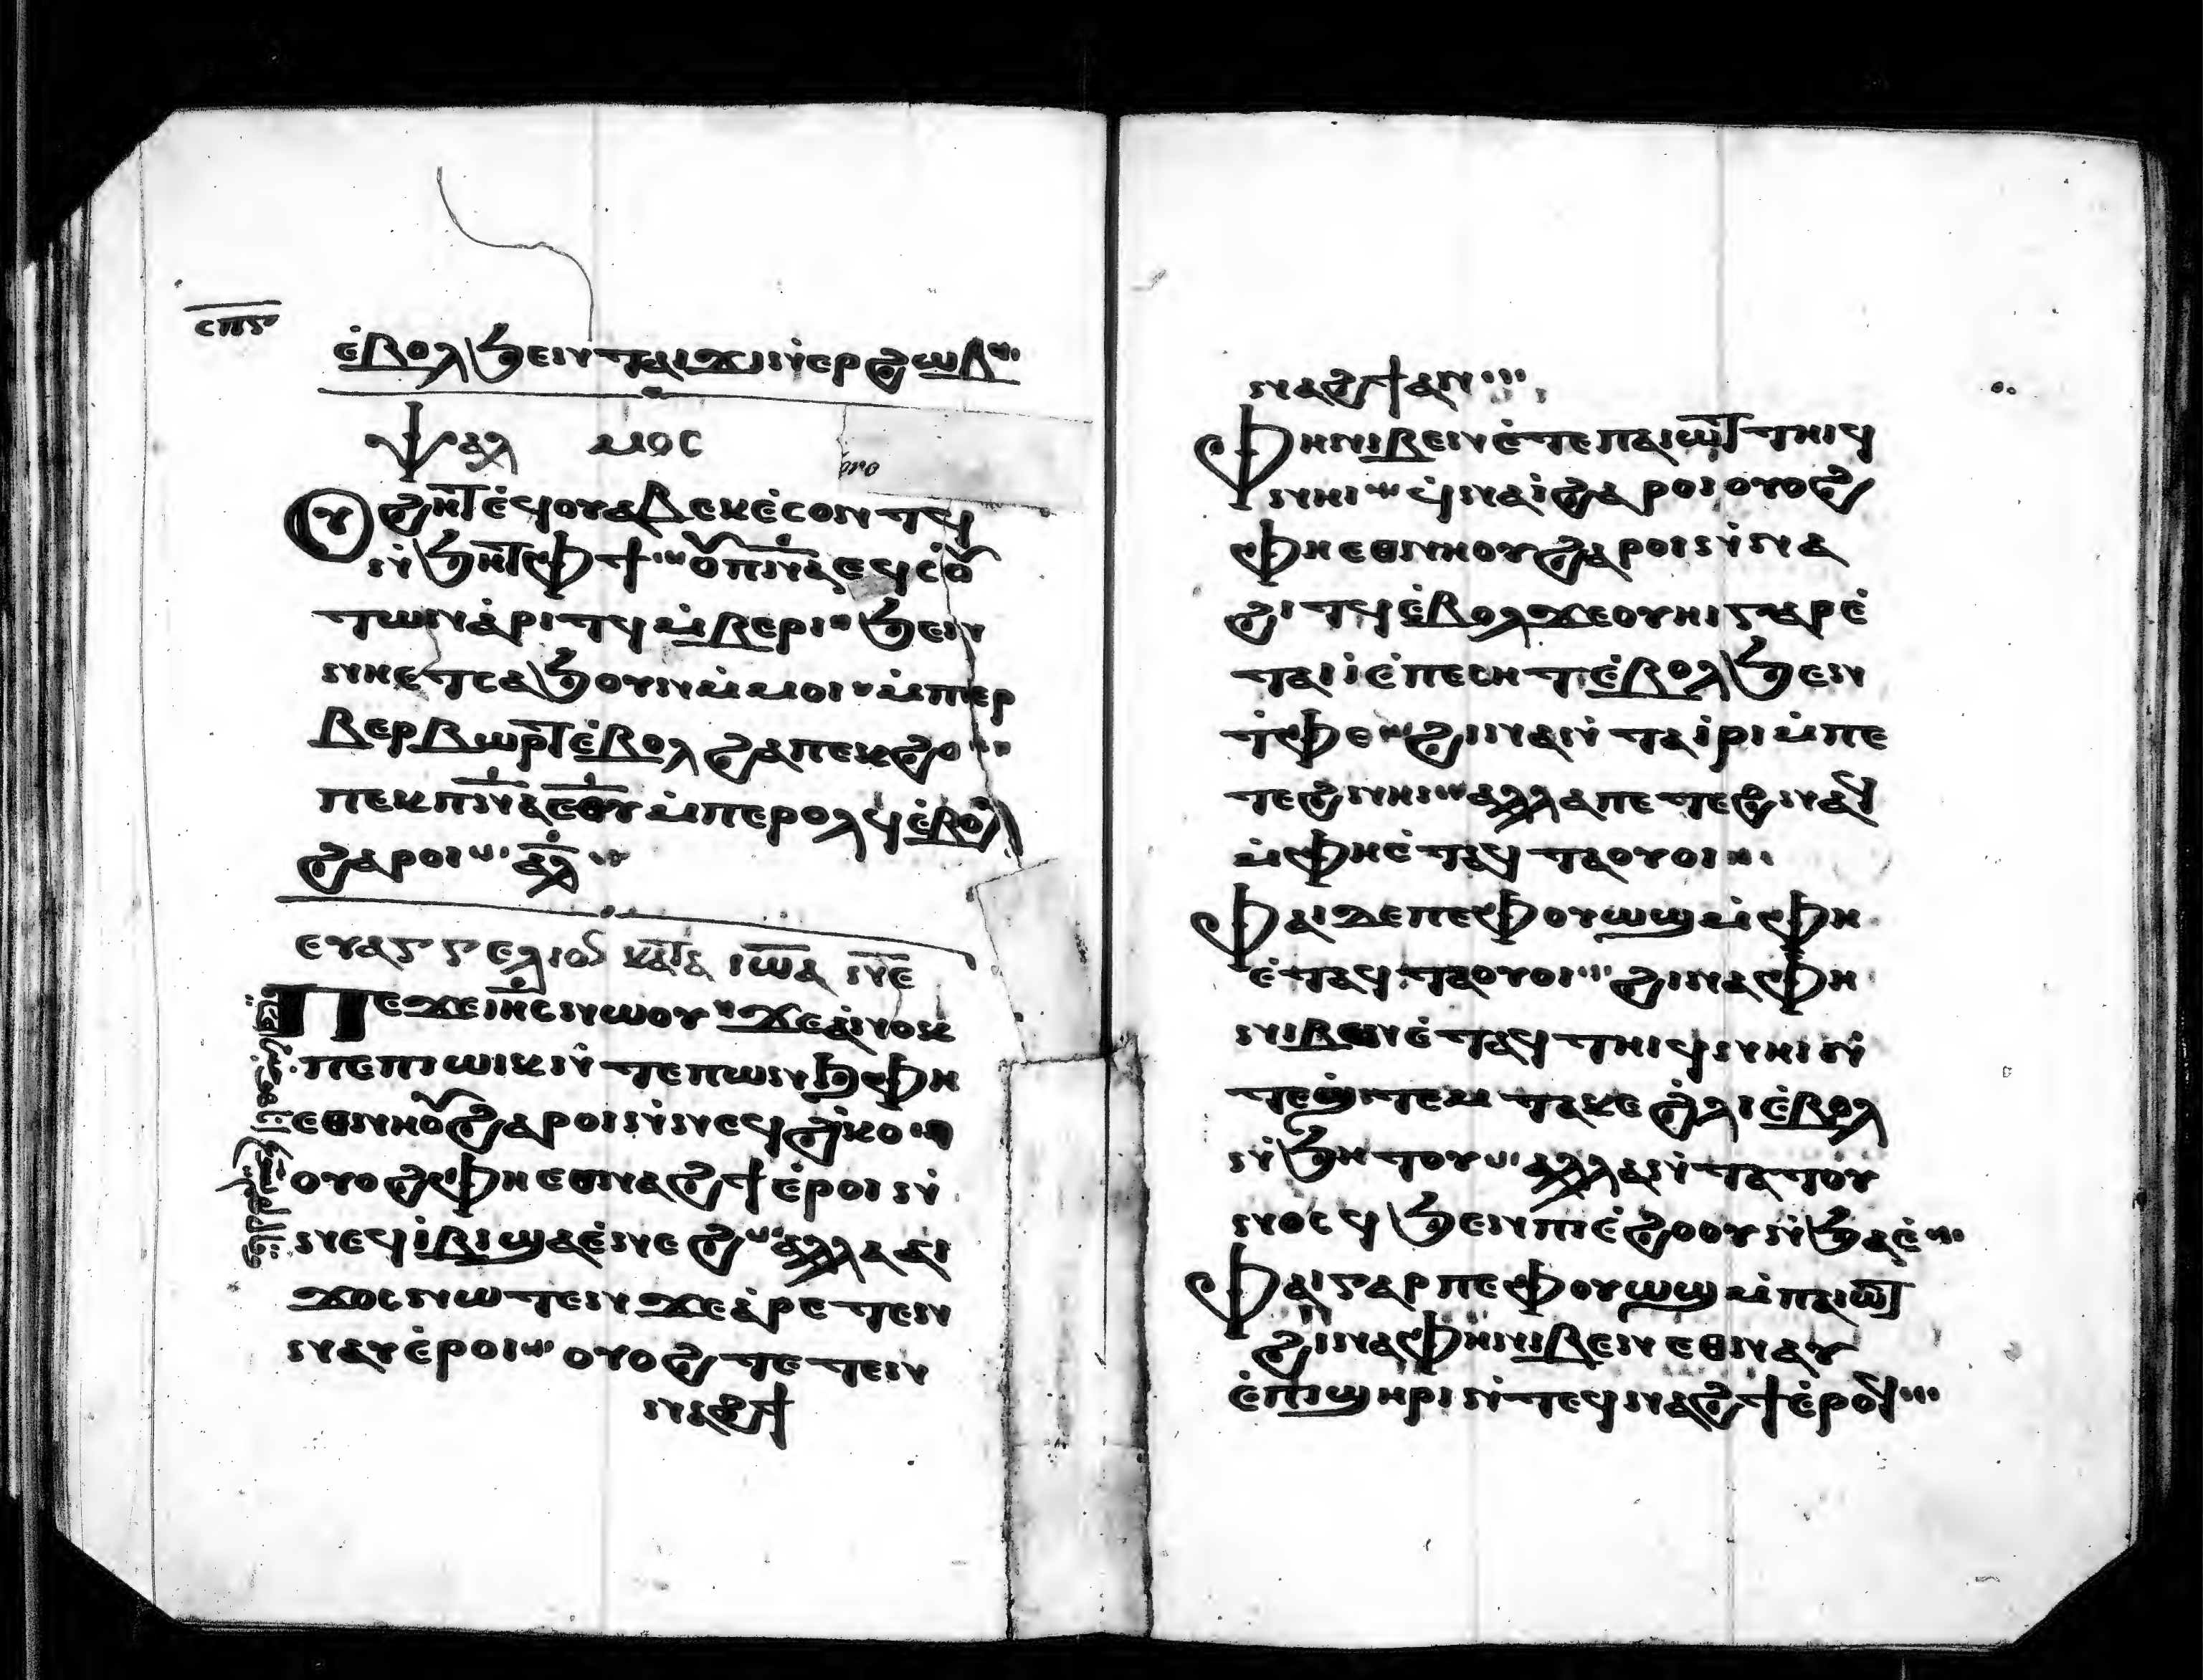 ⲥⲡⲋ
ⲉ̇ⲃⲟⲗϧⲉⲛⲧⲁⲓϫⲓⲛⲉⲣϩⲱⲃ
ⲯⲁⲗ ⲙⲟⲥ
ⲟⲩϩⲏⲧⲉ̇ϥⲟⲩⲁⲃⲉⲕⲉ̇ⲥⲟⲛⲧϥ
ⲛ̇ϧⲏⲧⲫϯ ⲟⲩⲡ̅ⲛ̅ⲁ̅ⲉϥⲥⲟⲩ
ⲧⲱⲛⲁ̇ⲣⲓⲧϥⲙ̇ⲃⲉⲣⲓ ϧⲉⲛ
ⲛⲏⲉⲧⲥⲁϧⲟⲩⲛⲙ̇ⲙⲟⲓ ⲙ̇ⲡⲉⲣ
ⲃⲉⲣⲃⲱⲣⲧⲉ̇ⲃⲟⲗϩⲁⲡⲉⲕϩⲟ
ⲡⲉⲕⲡ̅ⲛ̅ⲁ̅ⲉ̅ⲑ̅ⲩ̅ⲙ̇ⲡⲉⲣⲟⲗϥⲉ̇ⲃⲟⲗ
ϩⲁⲣⲟⲓ ⲁ̅ⲗ̅
ⲉⲩⲁⲅⲅⲉⲗⲓⲟⲛ ⲕⲁⲧⲁ ⲓⲱ̅ⲁ ⲛⲉ
ⲡⲉϫⲉⲓⲏⲥⲛⲱⲟⲩ ϫⲉⲁ̇ⲛⲟⲕ
ⲡⲉⲡⲓⲱⲓⲕⲛ̇ⲧⲉⲡⲱⲛϧⲫⲏ
ⲉⲑⲛⲏⲟⲩϩⲁⲣⲟⲓⲛ̇ⲛⲉϥϩ̇ⲕⲟ
ⲟⲩⲟϩⲫⲏⲉⲑⲛⲁϩϯⲉ̇ⲣⲟⲓⲛ̇
ⲛⲉϥⲓ̇ⲃⲓϣⲁⲉ̇ⲛⲉϩ ⲁⲗⲗⲁⲁⲓ
ϫⲟⲥⲛⲱⲧⲉⲛϫⲉⲁ̇ⲣⲉⲧⲉⲛ
ⲛⲁⲩⲉ̇ⲣⲟⲓ ⲟⲩⲟϩⲧⲉⲧⲉⲛ
ⲛⲁϩϯ
ⲛⲁϩϯⲁⲛ
ⲫⲏⲛⲓⲃⲉⲛⲉ̇ⲧⲉⲡⲁⲓⲱⲧⲧⲏⲓϥ
ⲛⲏⲓ ϥ̇ⲛⲁⲓ̇ϩⲁⲣⲟⲓⲟⲩⲟϩ
ⲫⲏⲉⲑⲛⲏⲟⲩϩⲁⲣⲟⲓⲛ̇ⲛⲁ
ϩⲓⲧϥⲉ̇ⲃⲟⲗϫⲉⲟⲩⲏⲓⲅⲁⲣⲉ̇
ⲧⲁⲓⲓ̇ⲉ̇ⲡⲉⲥⲏⲧⲉ̇ⲃⲟⲗϧⲉⲛ
ⲧ̇ⲫⲉ ϩⲓⲛⲁⲛ̇ⲧⲁⲓ̇ⲣⲓⲙ̇ⲡⲉ
ⲧⲉϩⲛⲏⲓ ⲁⲗⲗⲁⲡⲉⲧⲉϩⲛⲁϥ
ⲙ̇ⲫⲏⲉ̇ⲧⲁϥⲧⲁⲟⲩⲟⲓ
ⲫⲁⲓⲇⲉⲡⲉⲫⲟⲩⲱϣⲙ̇ⲫⲏ
ⲉ̇ⲧⲁϥⲧⲁⲟⲩⲟⲓ ϩⲓⲛⲁⲫⲏ
ⲛⲓⲃⲉⲛⲉ̇ⲧⲁϥⲧⲏⲓϥⲛⲏⲓⲛ̇
ⲧⲉϣ̇ⲧⲉⲙⲧⲁⲕⲉϩ̇ⲗⲓⲉ̇ⲃⲟⲗ
ⲛ̇ϧⲏⲧⲟⲩ ⲁⲗⲗⲁⲛ̇ⲧⲁⲧⲟⲩ
ⲛⲟⲥϥϧⲉⲛⲡⲓⲉ̇ϩⲟⲟⲩⲛ̇ϧⲁⲉ̇
ⲫⲁⲓⲅⲁⲣⲡⲉⲫⲟⲩⲱϣⲙ̇ⲡⲁⲓⲱⲧ
ϩⲓⲛⲁⲫⲏⲛⲓⲃⲉⲛⲉⲑⲛⲁⲩ
ⲉ̇ⲡϣⲏⲣⲓⲛ̇ⲧⲉϥⲛⲁϩϯⲉ̇ⲣⲟϥ